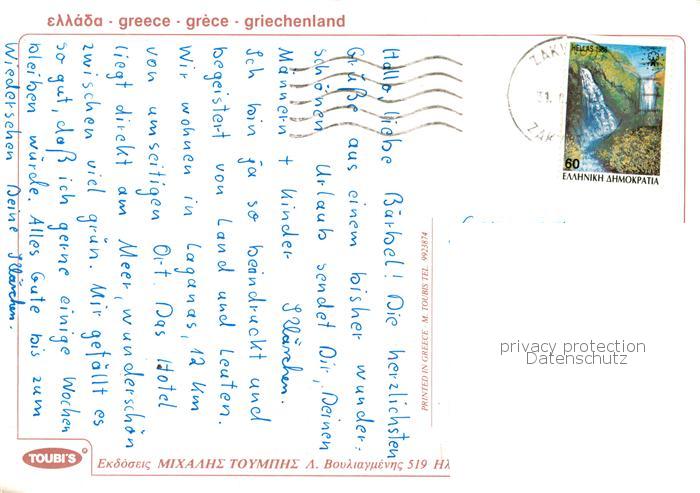 ελλάδα · greece · grèce · griechenland
Hallo, liebe Bärbel! Die herzlichsten
Grüße aus einem bisher wunder-
schönen Urlaub sendet Dir, Deinen
Männern + Kinder Klärchen.
Ich bin ja so beindruckt und
begeistert von Land und Leuten.
Wir wohnen in Laganas, 12 km
von umseitigen Ort. Das Hotel
liegt direkt am Meer, wunderschön
zwischen viel grün. Mir gefällt es
so gut, daß ich gerne einige Wochen
bleiben würde. Alles Gute bis zum
Wiedersehen Deine Klärchen.
HELLAS 1988
60
ΕΛΛΗΝΙΚΗ ΔΗΜΟΚΡΑΤΙΑ
31.
PRINTED IN GREECE M. TOUBIS TEL. 9923874
privacy protection
Datenschutz
TOUBI'S
Εκδόσεις ΜΙΧΑΛΗΣ ΤΟΥΜΠΗΣ Λ. Βουλιαγμένης 519 Ηλ